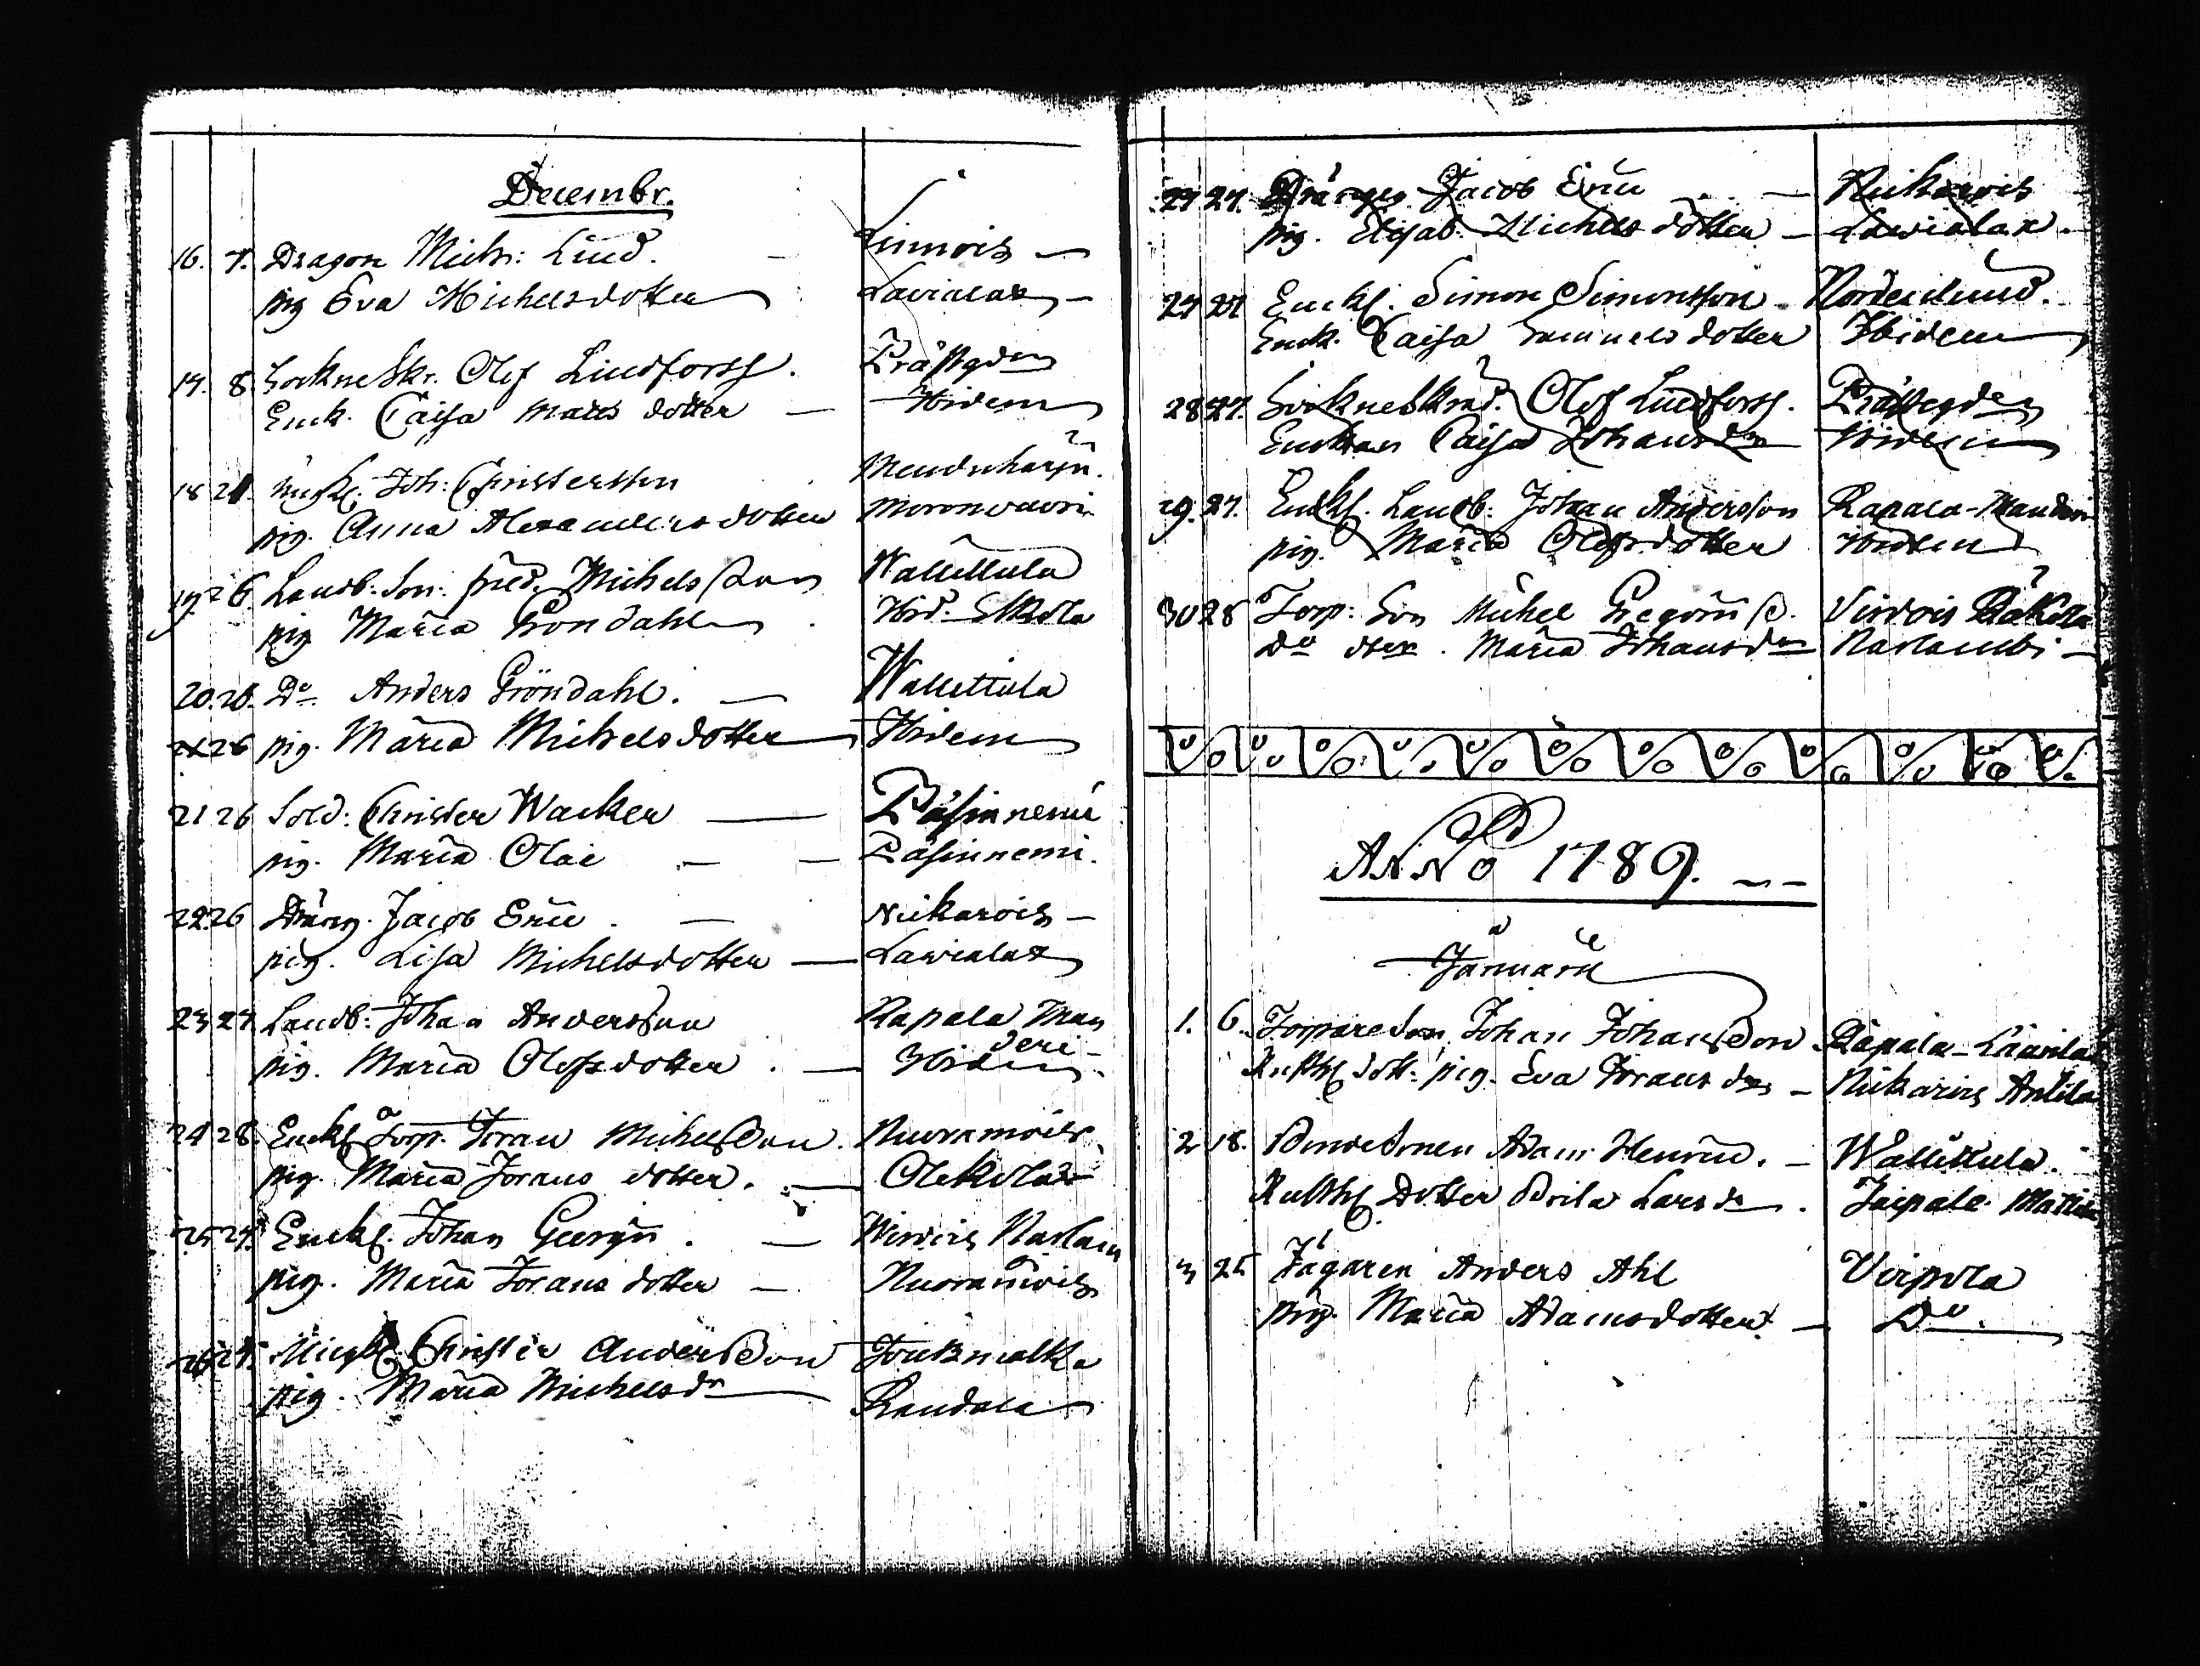 Decembr.
16. 7. Dragon Mich: Lind. Linnois
pig Eva Michelsdotter Lavialax
17. 8. Sockne Skr. Olof Lindforss. Prästgden
Enk. Caisa Matts dotter Ibidem
18 21. Joh: Christersson
pig. Anna Alexandersdotter
19 26. Landb. Son: Fred. Michelsson Wallittula
pig Maria Gröndahl Ibid.
20. 26. Do Anders Gröndahl. Wallittula
26 pig. Maria Michelsdotter Ibidem
21 26 Sold: Christer Wacker Päsinnemi
pig. Maria Olai Päsinnemi.
22 26 Dräng. Jacob Eric Nikarois
pig. Lisa Michelsdotter Lavialax
23 27. Landb: Johan Andersson Rapala Man
deri
pig. Maria Olofsdotter Ibidem
24 28. Enkl Torp. Joran Michelsson. Nuoramois
pig. Maria Jorans dotter.
25 27. Enkl. Johan Georgii. Virvois
pig. Maria Jorans dotter Nuoramois
26 27. Christer Andersson
pig. Maria Michelsdr Raudala
27 27. Drängen Jacob Eric Nikarois
pig. Elisab. Michelsdotter Lavialax.
27 27 Enkl. Simon Simonsson Nordenlund.
Enk. Caisa Samuelsdotter Ibidem
28 27. Olof Lindforss. Prästegden
Enkan Caisa Johansdr Ibidem
29. 27. Enkl. Landb: Johan Andersson Rapala-Manderi
pig. Maria Olofsdotter Ibidem
30 28 Torp: Son Michel Gregorii S. Virvois
Do dotter. Maria Johansdr
ANNO 1789.
Januarii
1. 6. Torpare Son Johan Johansson Rapala-
dott: pig. Eva Joransdr Nikarois Antila
2 18. Bonde Sonen Adam Henrici. Wallittula.
Dotter Brita Larsdr. Jaipale
3 25 Jägaren Anders Ahl Virpola
pig. Maria Adamsdotter. Do.